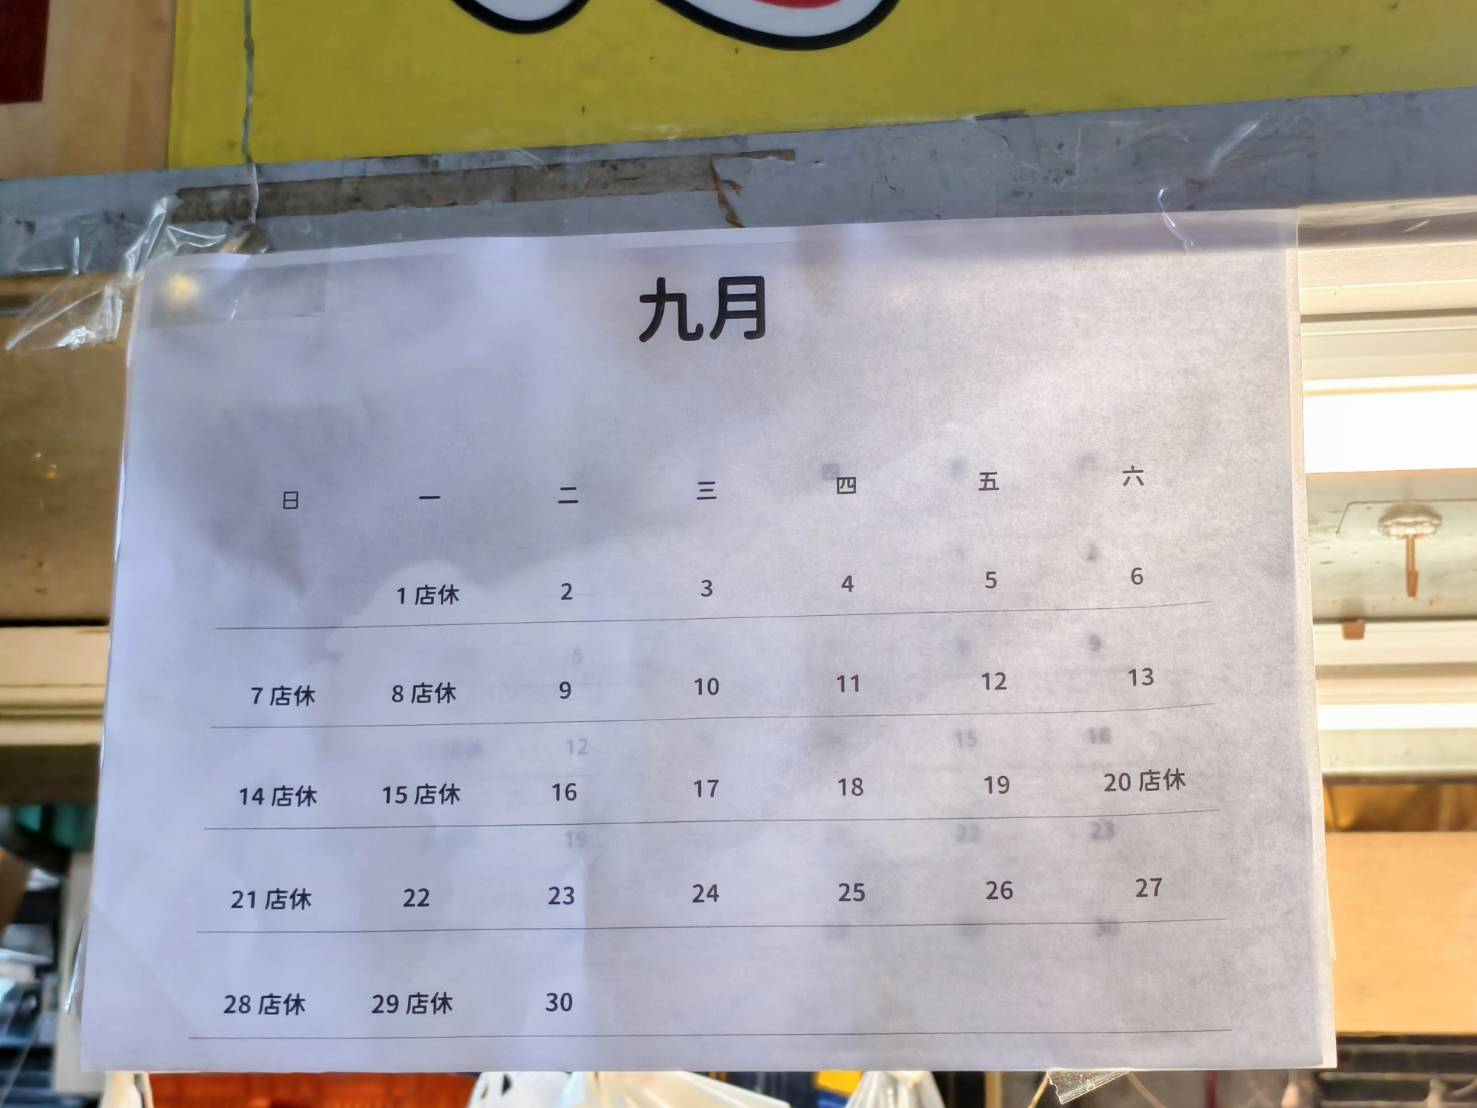 九月
日 一 二 三 四 五 六
1 店休 2 3 4 5 6
7 店休 8 店休 9 10 11 12 13
14 店休 15 店休 16 17 18 19 20 店休
21 店休 22 23 24 25 26 27
28 店休 29 店休 30